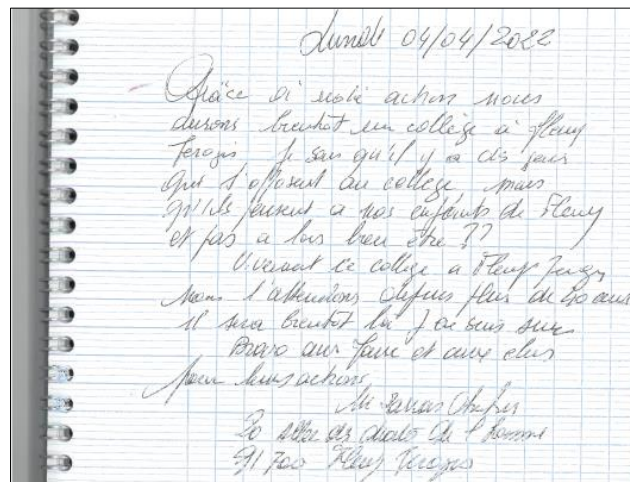 Lundi 04/04/2022
Grâce à notre action nous
aurons bientôt un collège à Fleury
Merogis je sais qu'il y a des gens
qui s'opposent au collège mais
qu'ils pensent a nos enfants de Fleury
et pas a leurs bien être ??
Vivement ce collège a Fleury
Nous l'attendons depuis plus de ans
il sera bientôt la j'en suis sur
Bravo aux et aux elus
pour leurs actions
Mr
20 allée des droits de l'homme
91700 Fleury Merogis